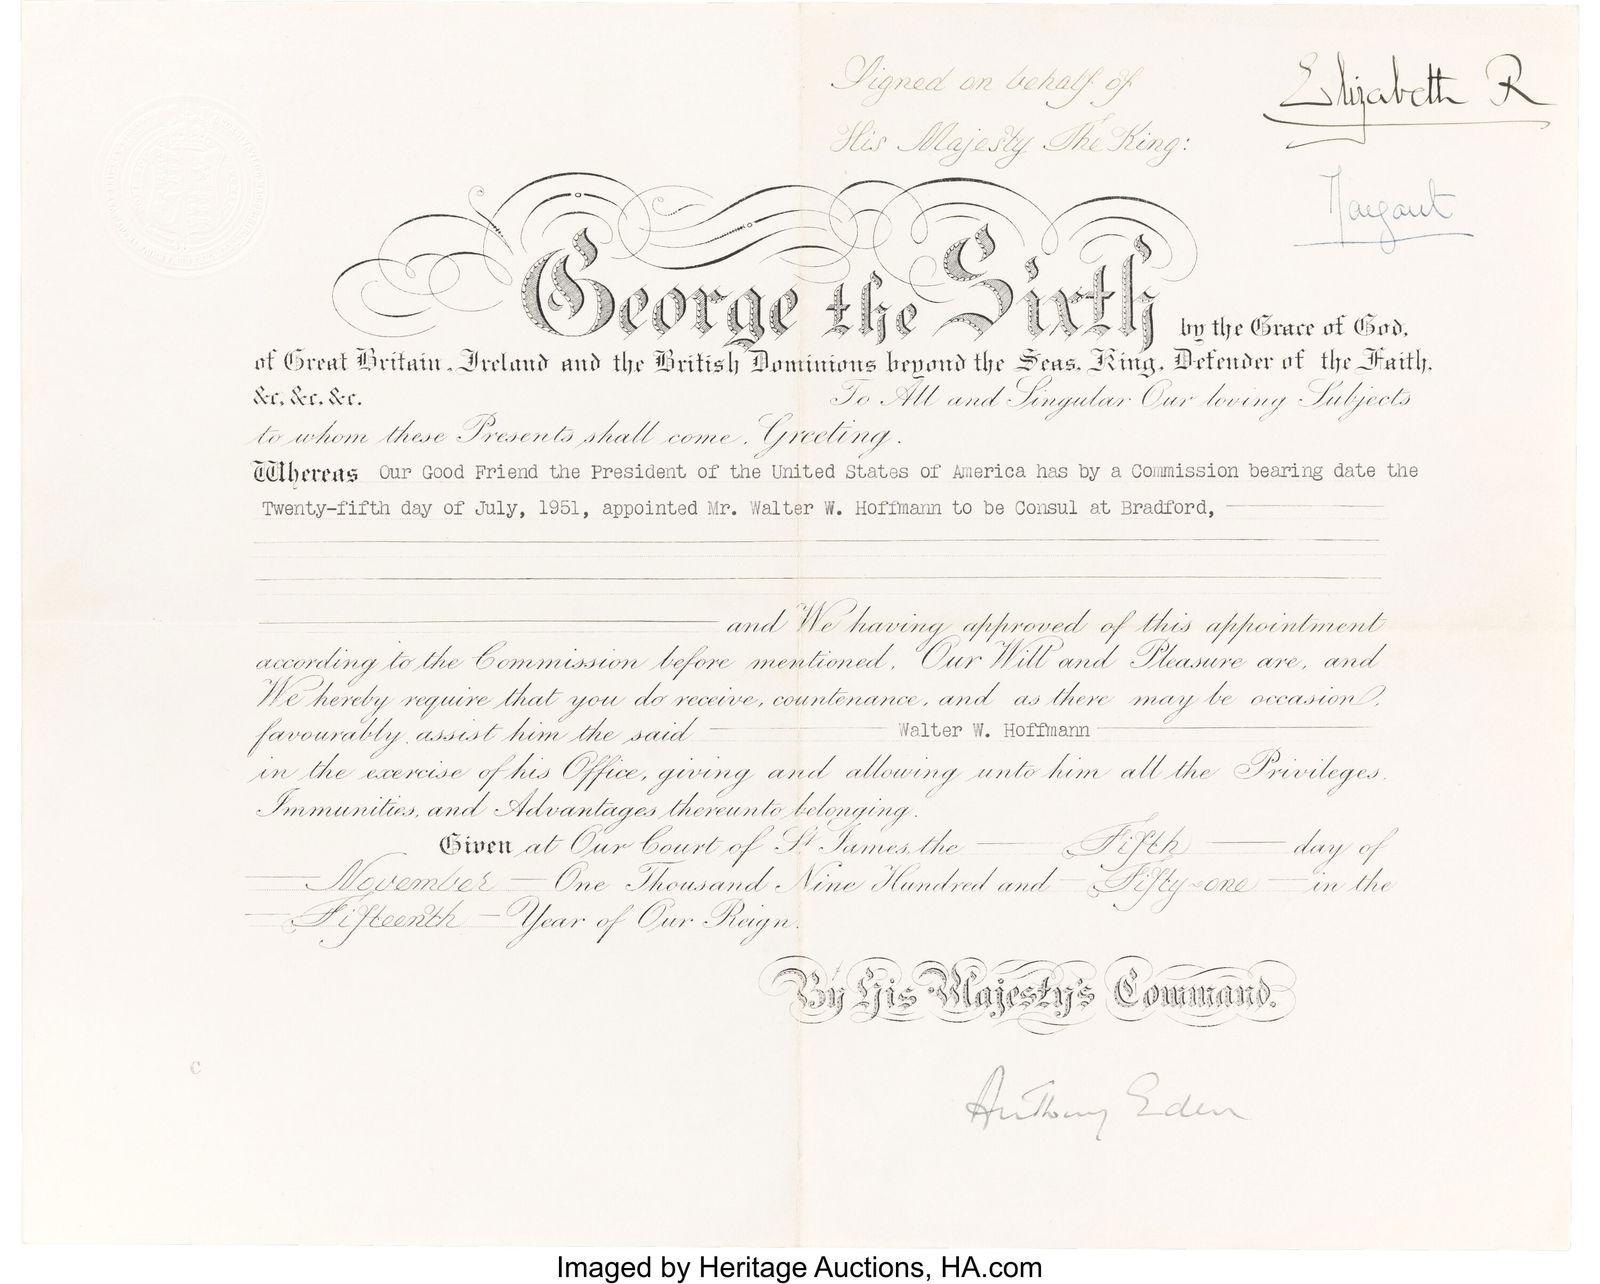 Signed on behalf of
His Majesty The King:
Elizabeth R
Margaret
George the Sixth by the Grace of God,
of Great Britain, Ireland and the British Dominions beyond the Seas, King, Defender of the Faith,
&c, &c, &c. To All and Singular Our loving Subjects
to whom these Presents shall come, Greeting.
Whereas Our Good Friend the President of the United States of America has by a Commission bearing date the
Twenty-fifth day of July, 1951, appointed Mr. Walter W. Hoffmann to be Consul at Bradford,
and We having approved of this appointment
according to the Commission before mentioned, Our Will and Pleasure are, and
We hereby require that you do receive, countenance, and as there may be occasion,
favourably assist him the said Walter W. Hoffmann
in the exercise of his Office, giving and allowing unto him all the Privileges,
Immunities, and Advantages thereunto belonging.
Given at Our Court of St James, the Fifth day of
November One Thousand Nine Hundred and Fifty-one in the
Fifteenth Year of Our Reign.
By His Majesty's Command.
C
Anthony Eden
Imaged by Heritage Auctions, HA.com